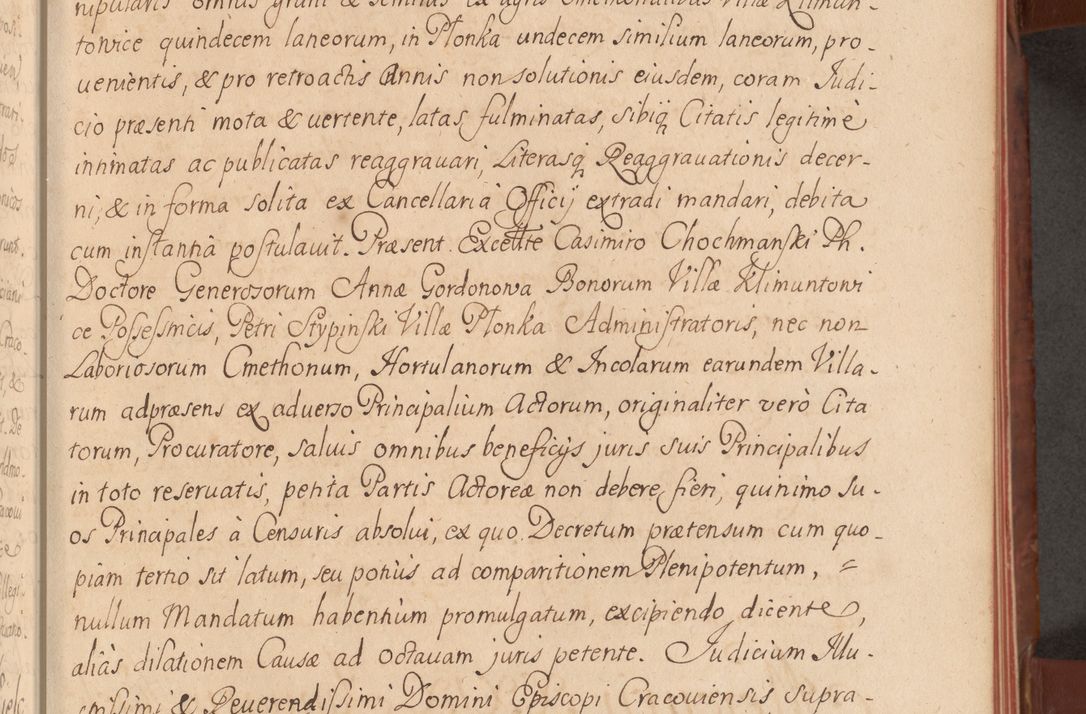 nipularis omnis grani & seminis ex agris Cmethonalibus Villæ Klimun-
towice quindecem laneorum, in Płonka undecem similium laneorum, pro-
uenientis, & pro retroactis Annis non solutionis eiusdem, coram Judi-
cio præsenti mota & uertente, latas, fulminatas, sibiq Citatis legitimè
intimatas ac publicatas reaggrauari, Literasq Reaggrauationis decer-
ni, & in forma solita ex Cancellaria Officij extradi mandari, debita
cum instantiâ postulauit. Præsent. Excellte Casimiro Chochmański Ph.
Doctore Generosorum Annæ Gordonowa Bonorum Villæ Klimuntowi
ce Possessricis, Petri Stypinski Villæ Płonka Administratoris, nec non
Laboriosorum Cmethonum, Hortulanorum & Incolarum earundem Villa-
rum adpræsens ex aduerso Principalium Actorum, originaliter verò Cita
torum, Procuratore, saluis omnibus beneficijs juris suis Principalibus
in toto reseruatis, petita Partis Actoreæ non debere fieri, quinimo su-
os Principales à Censuris absolui, ex quo Decretum prætensum cum quo-
piam tertio sit latum, seu potiùs ad comparitionem Plenipotentum, =
nullum Mandatum habentium promulgatum, excipiendo dicente,
aliàs dilationem Causæ ad octauam juris petente. Judicium Illu-
strissimi & Reuerendissimi Domini Episcopi Cracouiensis supra-